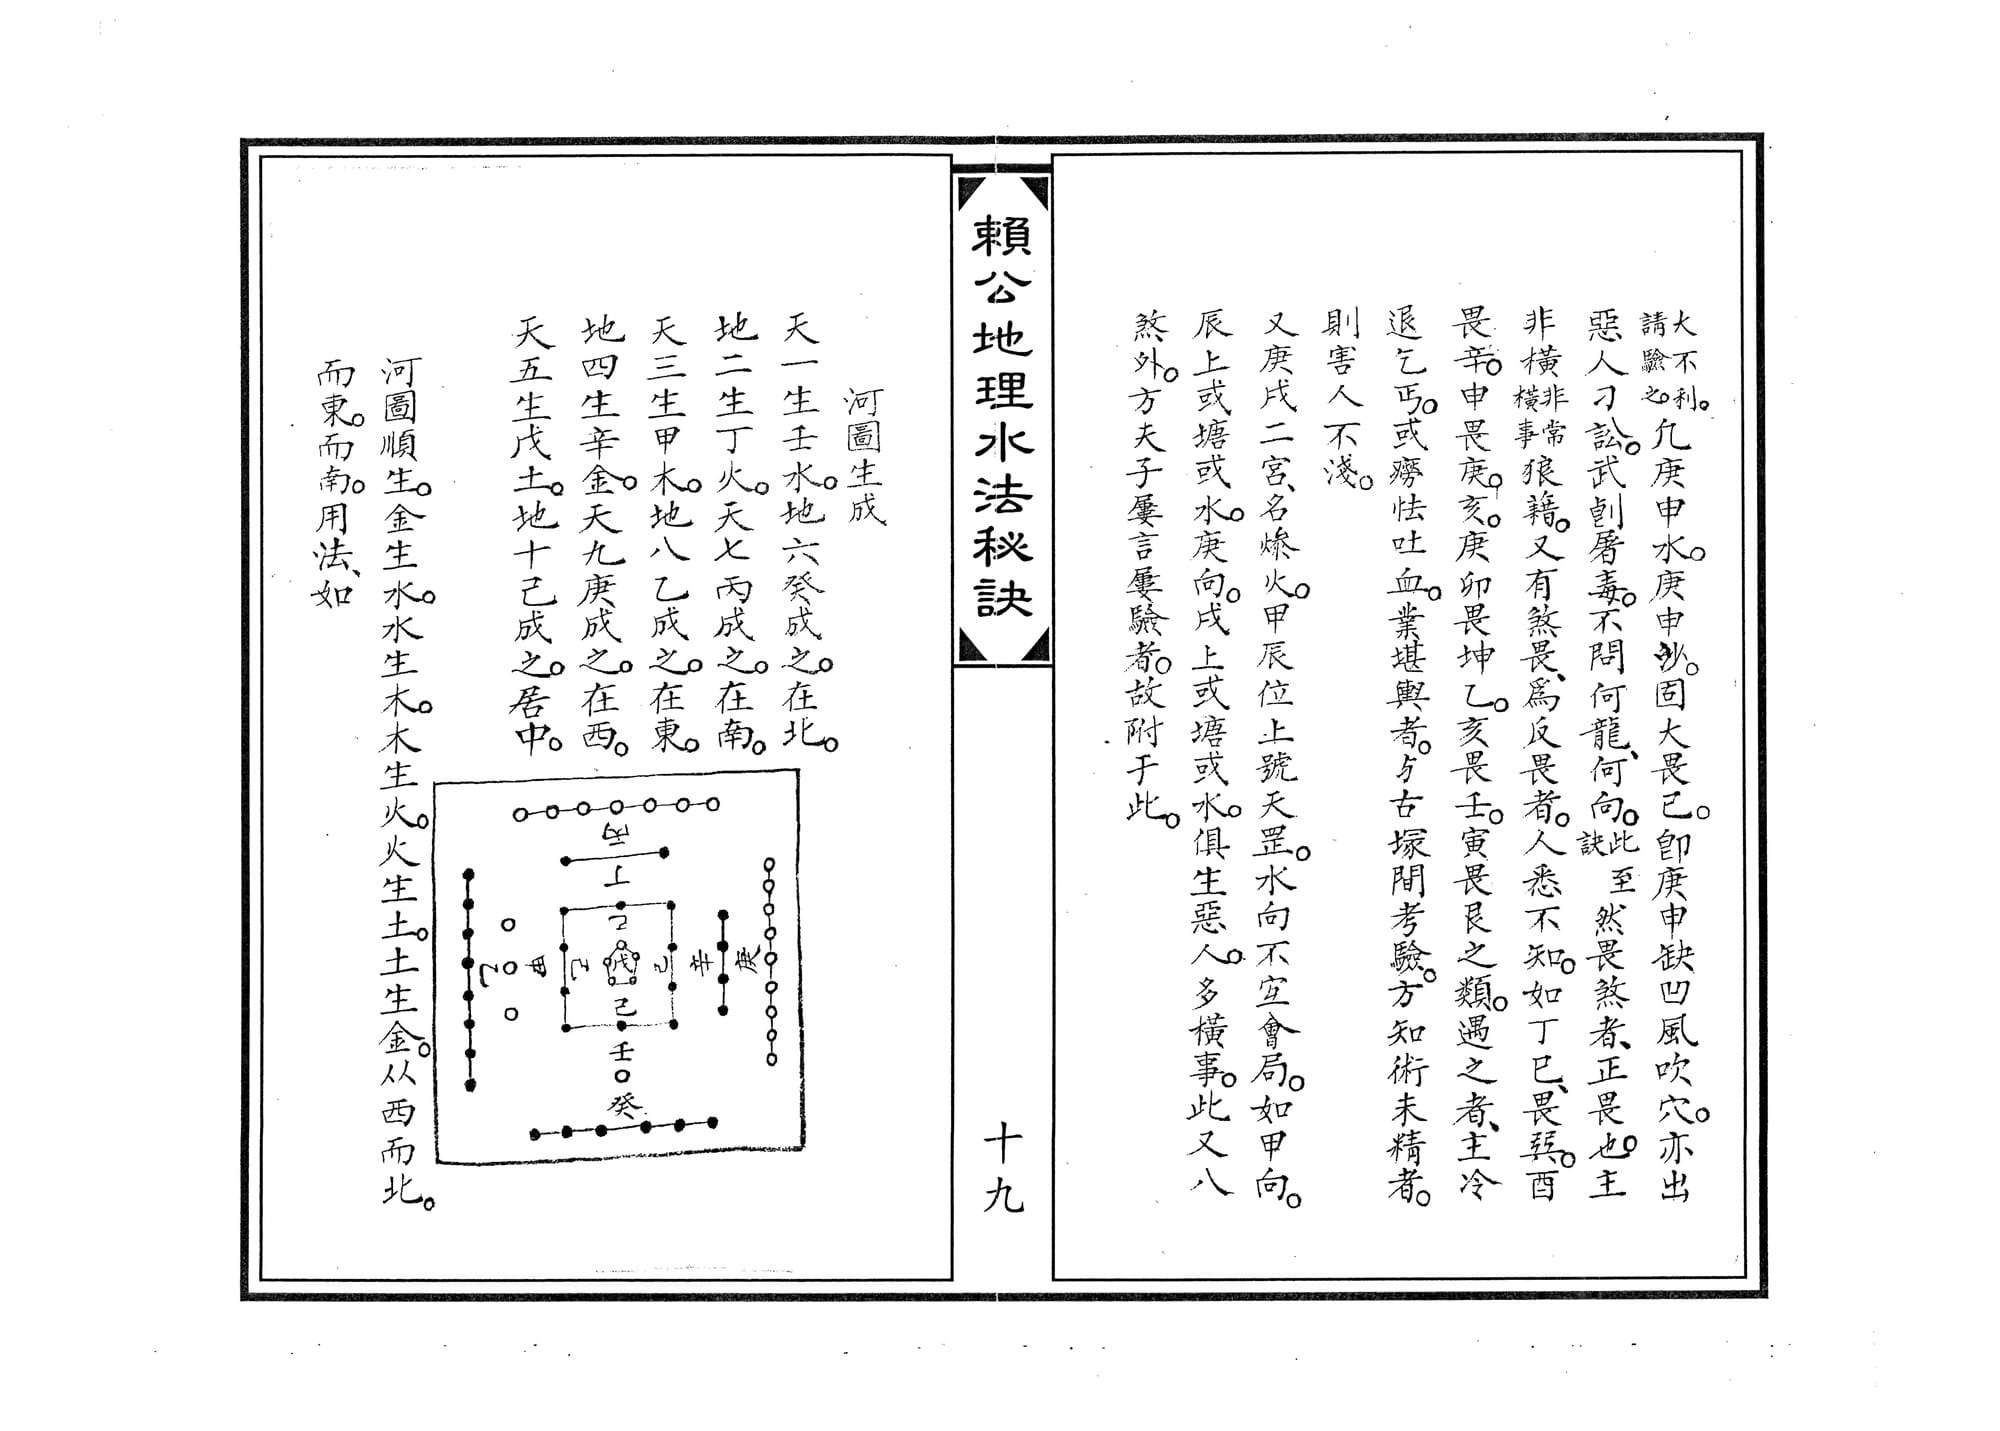 大不利。
請驗之。
凢庚申水。庚申沙。固大畏已。卽庚申缺凹風吹穴。亦出
惡人刁訟。武創屠毒。不問何龍、何向。此至訣 然畏煞者、正畏也。主
非橫非常橫事狼藉。又有煞畏、爲反畏者。人悉不知。如丁巳、畏巽。酉
畏辛。申畏庚。亥。庚卯畏坤乙。亥畏壬。寅畏艮之類。遇之者、主冷
退乞丐。或癆怯吐血。業堪輿者。与古塚間考驗。方知術未精者。
則害人不淺。
又庚戌二宮、名燐火。甲辰位上號天罡。水向不宜會局。如甲向。
辰上或塘或水。庚向。戌上或塘或水。俱生惡人。多橫事。此又八
煞外。方夫子屢言屢驗者。故附于此。
賴公地理水法秘訣
十九
河圖生成
天一生壬水。地六癸成之。在北。
地二生丁火。天七丙成之。在南。
天三生甲木。地八乙成之。在東。
地四生辛金。天九庚成之。在西。
天五生戊土。地十己成之。居中。
丙
丁
己
乙
甲
己
戊
己
辛
庚
己
壬
癸
河圖順生。金生水。水生木。木生火。火生土。土生金。从西而北。
而東。而南。用法、如